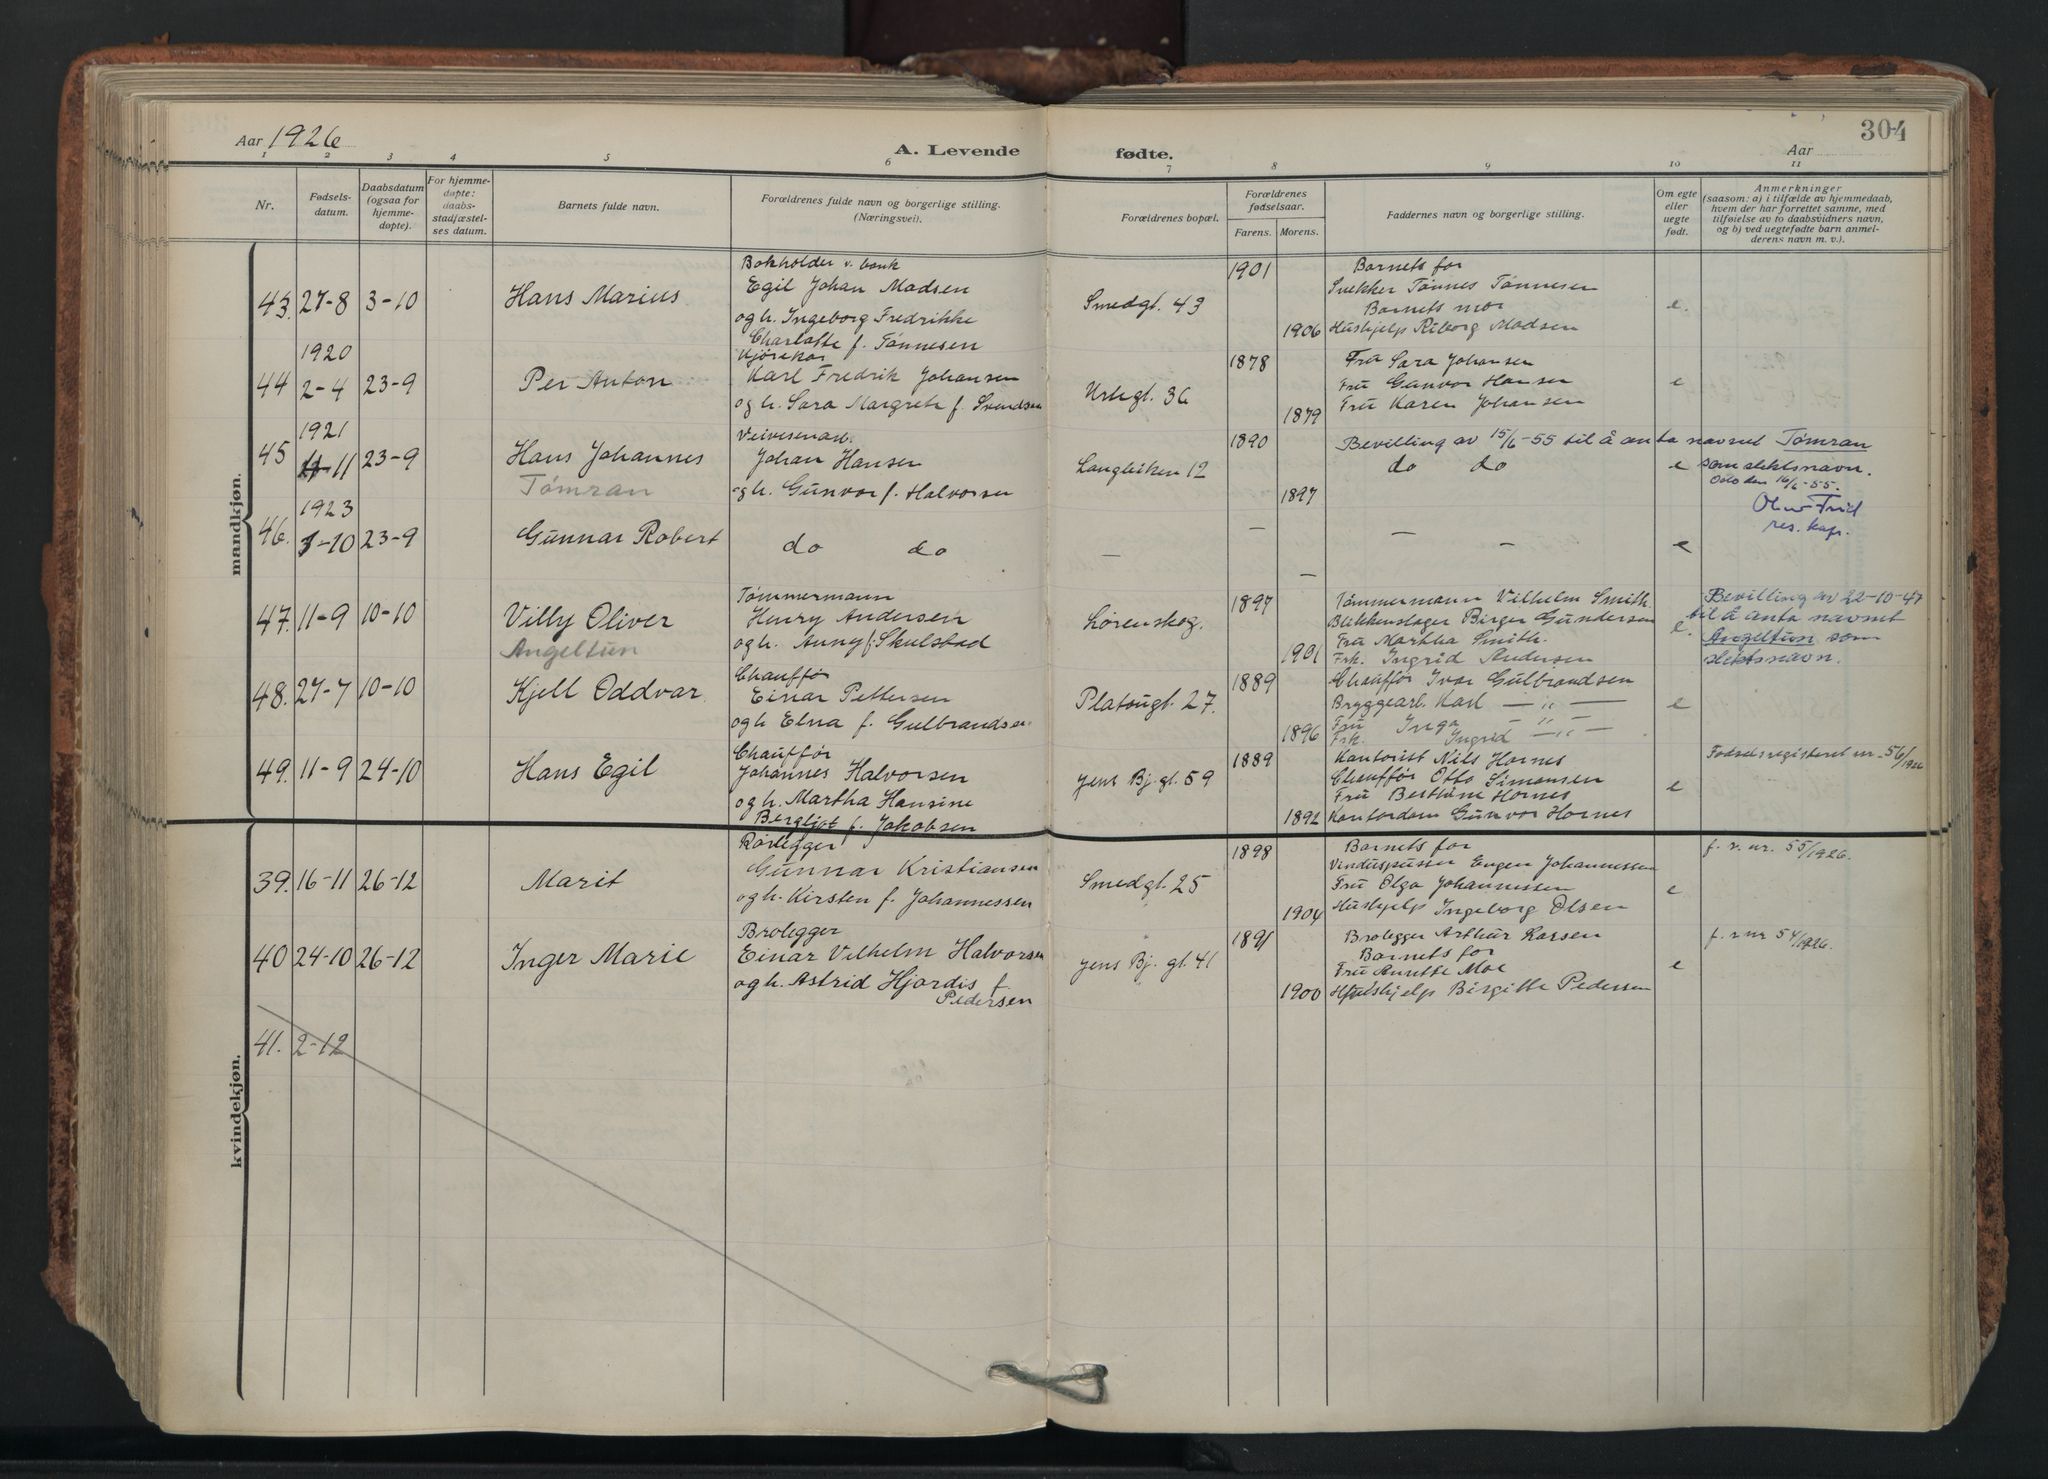 304
Aar 1926
A. Levende fødte.
Aar
1 2 3 4 5 6 7 8 9 10 11
Nr.
Fødsels-
datum.
Daabsdatum
(ogsaa for
hjemme-
døpte).
For hjemme-
døpte:
daabs-
stadfæstel-
ses datum.
Barnets fulde navn.
Forældrenes fulde navn og borgerlige stilling.
(Næringsvei).
Forældrenes bopæl.
Forældrenes
fødselsaar.
Farens. Morens.
Faddernes navn og borgerlige stilling.
Om egte
eller
uegte
født.
Anmerkninger
(saasom: a) i tilfælde av hjemmedaab,
hvem der har forrettet samme, med
tilføielse av to daabsvidners navn,
og b) ved uegtefødte barn anmel-
derens navn m. v.).
mandkjøn.
43. 27-8 3-10 Hans Marius
Bokholder v. bank
Egil Johan Madsen
og h. Ingeborg Fredrikke
Charlotte f. Tønnesen
Smedgt. 43
1901
1906
Barnets for
Snekker Tønnes Tønnesen
Barnets mor
Hushjelp Riborg Madsen
e.
44 1920
2-4 23-9 Per Anton
Kjørekar
Karl Fredrik Johansen
og h. Sara Margrete f. Svendsen
Urtegt. 36
1878
1879
Fru Sara Johansen
Fru Gunvor Hansen
Fru Karen Johansen
e
45 1921
11 23-9 Hans Johannes
Tømran
Veivesenarb.
Johan Hansen
og h. Gunvor f. Halvorsen
Langleiken 12
1890
1897
Bevilling av 15/6-55 til å anta navnet Tømran
do do
e
som slektsnavn.
Oslo den 16/6-55.
res. kap.
46. 1923
-10 23-9 Gunnar Robert
do do
—
—
—
— —
e
47. 11-9 10-10 Villy Oliver
Angeltun
Tømmermann
Henry Andersen
og h. Anny f. Skulstad
Lørenskog.
1897
1901
Tømmermann Vilhelm Smith.
Blikkenslager Birger Gundersen
Fru Martha Smith.
Frk. Ingrid Andersen
e.
Bevilling av 22-10-47
til å anta navnet
Angeltun som
slektsnavn.
48. 27-7 10-10 Kjell Oddvar
Chauffør
Einar Pettersen
og h. Elna f. Gulbrandsen
Platougt. 27.
1889
1896
Chauffør Ivar Gulbrandsen
Bryggearb. Karl — „ —
Fru Inga — „ —
Frk. Ingrid — „ —
e
49. 11-9 24-10 Hans Egil
Chauffør
Johannes Halvorsen
og h. Martha Hansine
Bergljot f. Jakobsen
Jens Bj. gt. 59
1889
1892
Kontorist Nils Hornes
Chauffør Otto Simensen
Fru Berthine Hornes
Kontordam Gunvor Hornes
e
Fødselsregisteret nr. 56/1926
kvindekjøn.
39. 16-11 26-12 Marit
Rørlegger
Gunnar Kristiansen
og h. Kirsten f. Johannessen
Smedgt. 25
1898
1904
Barnets for
Vinduspusser Eugen Johannessen
Fru Olga Johannessen
Hushjelp Ingeborg Olsen
e
f. r. nr. 55/1926.
40 24-10 26-12 Inger Marie
Brolegger
Einar Vilhelm Halvorsen
og h. Astrid Hjørdis f.
Pedersen
Jens Bj. gt. 41
1891
1900
Brolegger Arthur Larsen
Barnets for
Fru Annette Moe
Hushjelp Birgitte Pedersen
e
f. r nr 54/1926.
41. 2-12